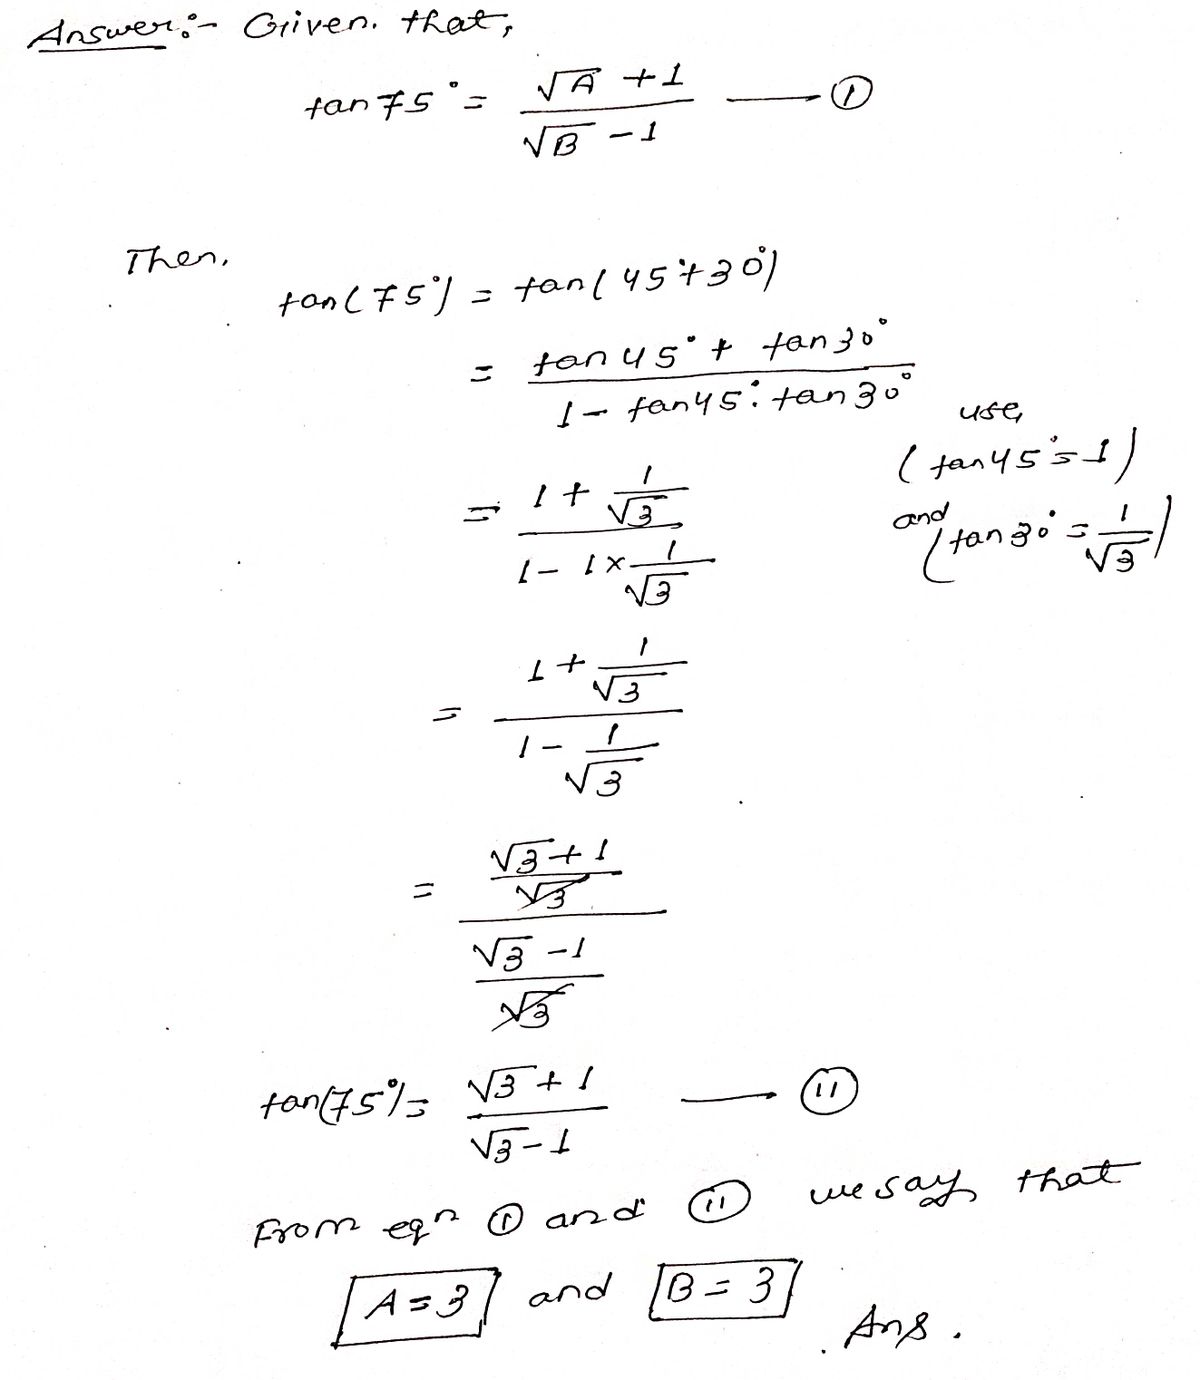 Answer:- Given. that,
tan 75° = (√A + 1)/(√B - 1) —— (I)
Then,
tan(75°) = tan(45°+30°)
= (tan 45° + tan 30°)/(1 - tan 45°. tan 30°)
use,
(tan 45° = 1)
and (tan 30° = 1/√3)
= (1 + 1/√3)/(1 - 1 × 1/√3)
= (1 + 1/√3)/(1 - 1/√3)
= ((√3 + 1)/√3)/((√3 - 1)/√3)
tan(75°) = (√3 + 1)/(√3 - 1) —— (II)
From eqn (I) and (II) we say that
A = 3 and B = 3
Ans.